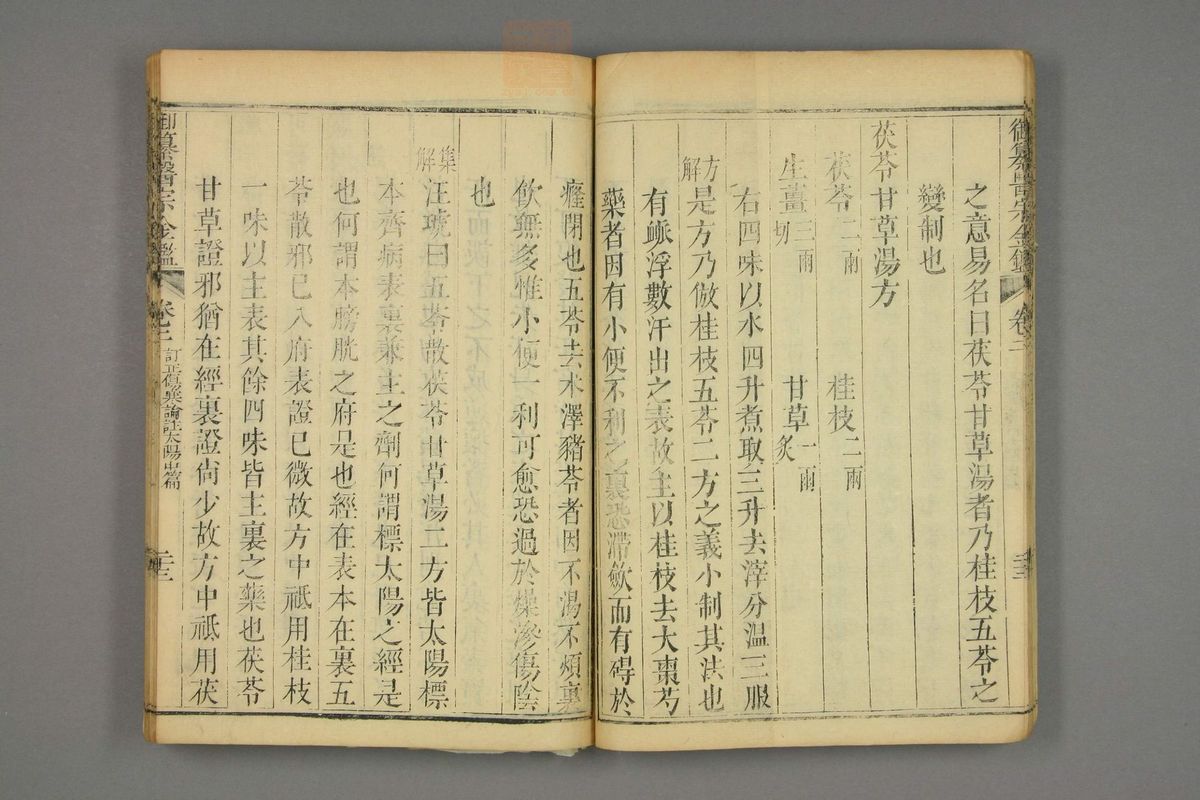 御纂醫宗金鑑 卷二
之意易名曰茯苓甘草湯者乃桂枝五苓之
變制也
茯苓甘草湯方
茯苓二兩 桂枝二兩
生薑三兩切 甘草一兩炙
右四味以水四升煮取二升去滓分溫三服
方解
是方乃倣桂枝五苓二方之義小制其法也
有脈浮數汗出之表故主以桂枝去大棗芍
藥者因有小便不利之裏恐滯斂而有碍於
癃閉也五苓去朮澤豬苓者因不渴不煩裏
飲無多惟小便一利可愈恐過於燥滲傷陰
也
集解
汪琥曰五苓散茯苓甘草湯二方皆太陽標
本齊病表裏兼主之劑何謂標太陽之經是
也何謂本膀胱之府是也經在表本在裏五
苓散邪已入府表證已微故方中祗用桂枝
一味以主表其餘四味皆主裏之藥也茯苓
甘草證邪猶在經裏證尚少故方中祗用茯
御纂醫宗金鑑 卷二 訂正傷寒論註太陽中篇